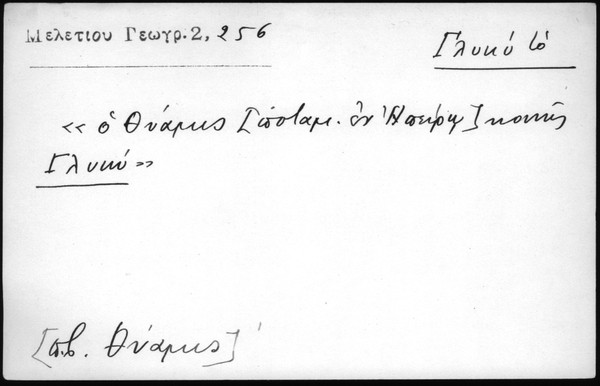 Μελετιου Γεωγρ. 2, 256
Γλυκύ τὸ
« ὁ Θύαμις [ποταμ. ἐν Ἠπείρῳ] κοινῶς
Γλυκύ »
[πβ. Θύαμις]